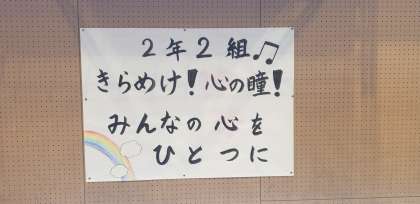 2年2組♫
きらめけ！心の瞳！
みんなの心を
ひとつに